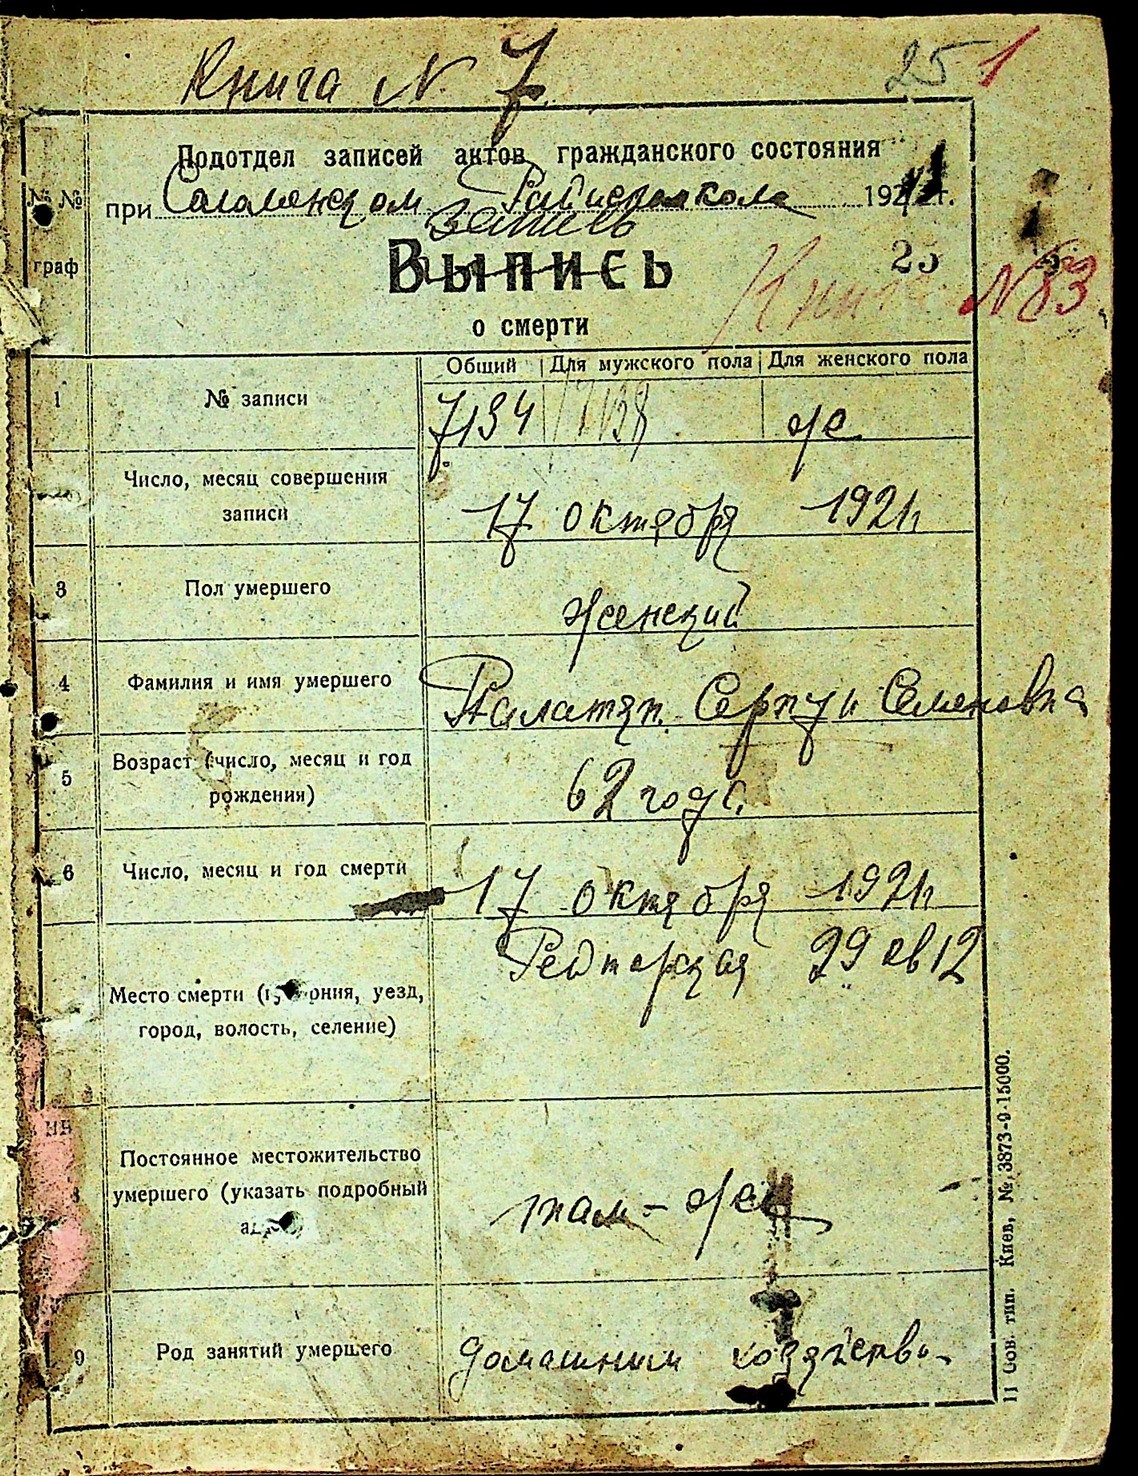 Книга N 7
25 1
Подотдел записей актов гражданского состояния
№ №
при Соломенском Райисполкоме 1921 г.
запись
граф
Выпись
25
Книга N 83
о смерти
Общий Для мужского пола Для женского пола
1 № записи 7134 же
Число, месяц совершения
записи
17 октября 1921 г
3 Пол умершего Женский
4 Фамилия и имя умершего Семеновна
5 Возраст (число, месяц и год
рождения)
62 года
6 Число, месяц и год смерти 17 октября 1921 г
29 кв 12
Место смерти (губерния, уезд,
город, волость, селение)
Постоянное местожительство
умершего (указать подробный
там-же
9 Род занятий умершего домашним хозяйство
11 Сов. тип. Киев, № 3873-9-15000.